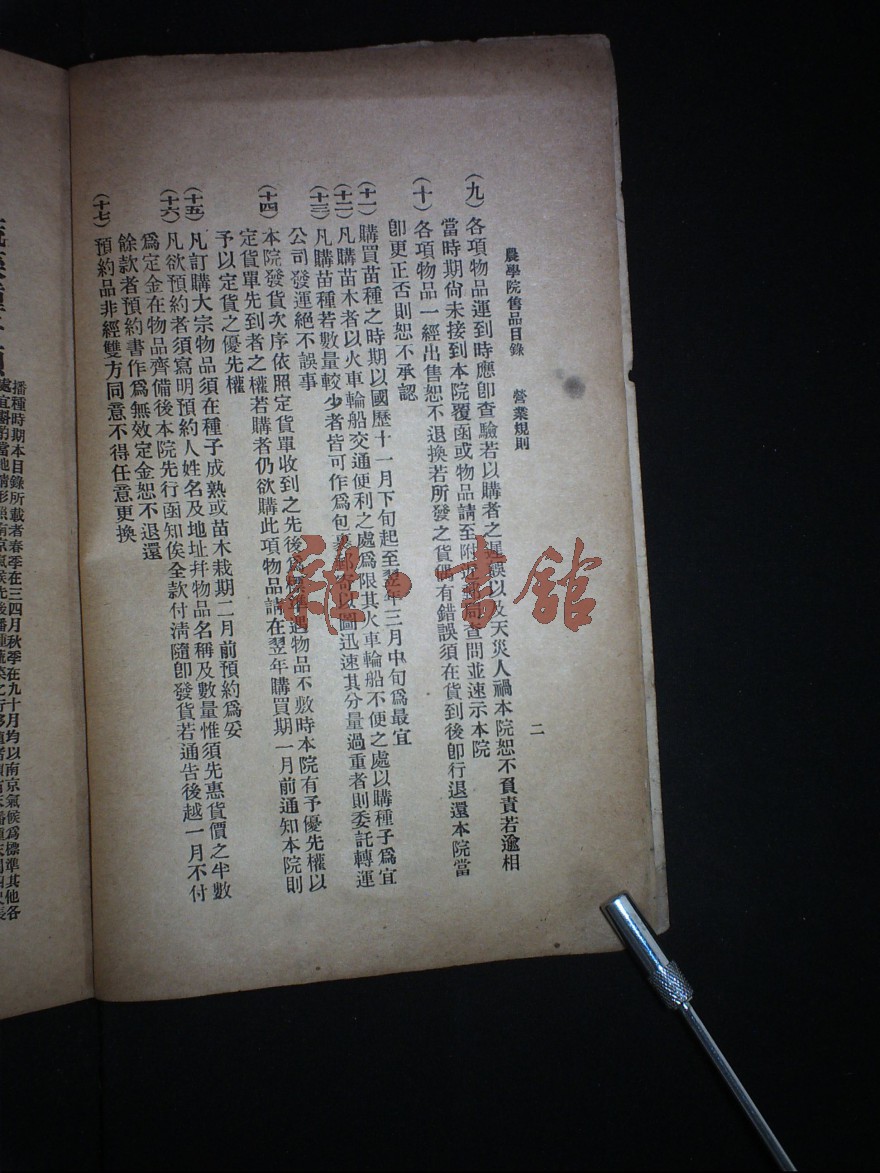 農學院售品目錄　營業規則　二
(九)各項物品運到時應卽查驗若以購者之遲誤以及天災人禍本院恕不負責若逾相
當時期尙未接到本院覆函或物品請至附近郵局查問並速示本院
(十)各項物品一經出售恕不退換若所發之貨偶有錯誤須在貨到後卽行退還本院當
卽更正否則恕不承認
(十一)購買苗種之時期以國歷十一月下旬起至翌年三月中旬爲最宜
(十二)凡購苗木者以火車輪船交通便利之處爲限其火車輪船不便之處以購種子爲宜
(十三)凡購苗種若數量較少者皆可作爲包裹郵寄以圖迅速其分量過重者則委託轉運
公司發運絕不誤事
(十四)本院發貨次序依照定貨單收到之先後爲標準遇物品不敷時本院有予優先權以
定貨單先到者之權若購者仍欲購此項物品請在翌年購買期一月前通知本院則
予以定貨之優先權
(十五)凡訂購大宗物品須在種子成熟或苗木栽期二月前預約爲妥
(十六)凡欲預約者須寫明預約人姓名及地址幷物品名稱及數量惟須先惠貨價之半數
爲定金在物品齊備後本院先行函知俟全款付淸隨卽發貨若通告後越一月不付
餘款者預約書作爲無效定金恕不退還
(十七)預約品非經雙方同意不得任意更換
播種時期本目錄所載者春季在三四月秋季在九十月均以南京氣候爲標準其他各
雜·書館